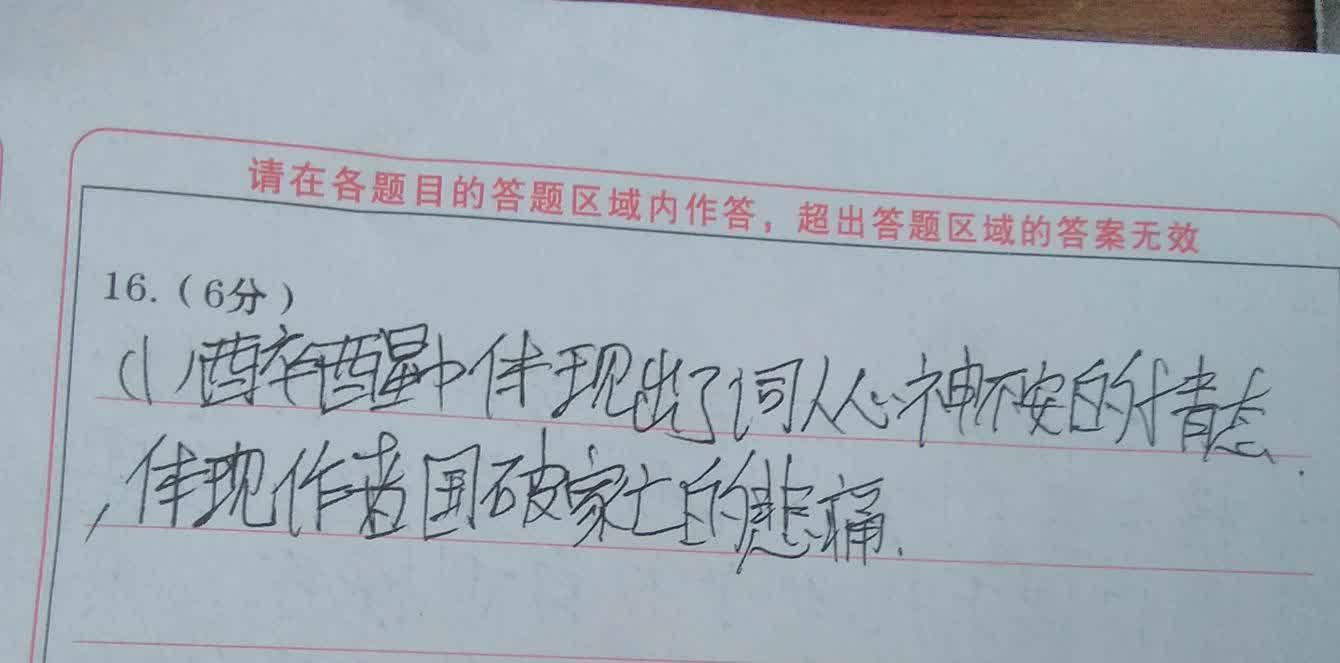 请在各题目的答题区域内作答，超出答题区域的答案无效
16.（6分）
(1)醉醒中体现出了词人心神不安的情态.
，体现作者国破家亡的悲痛.